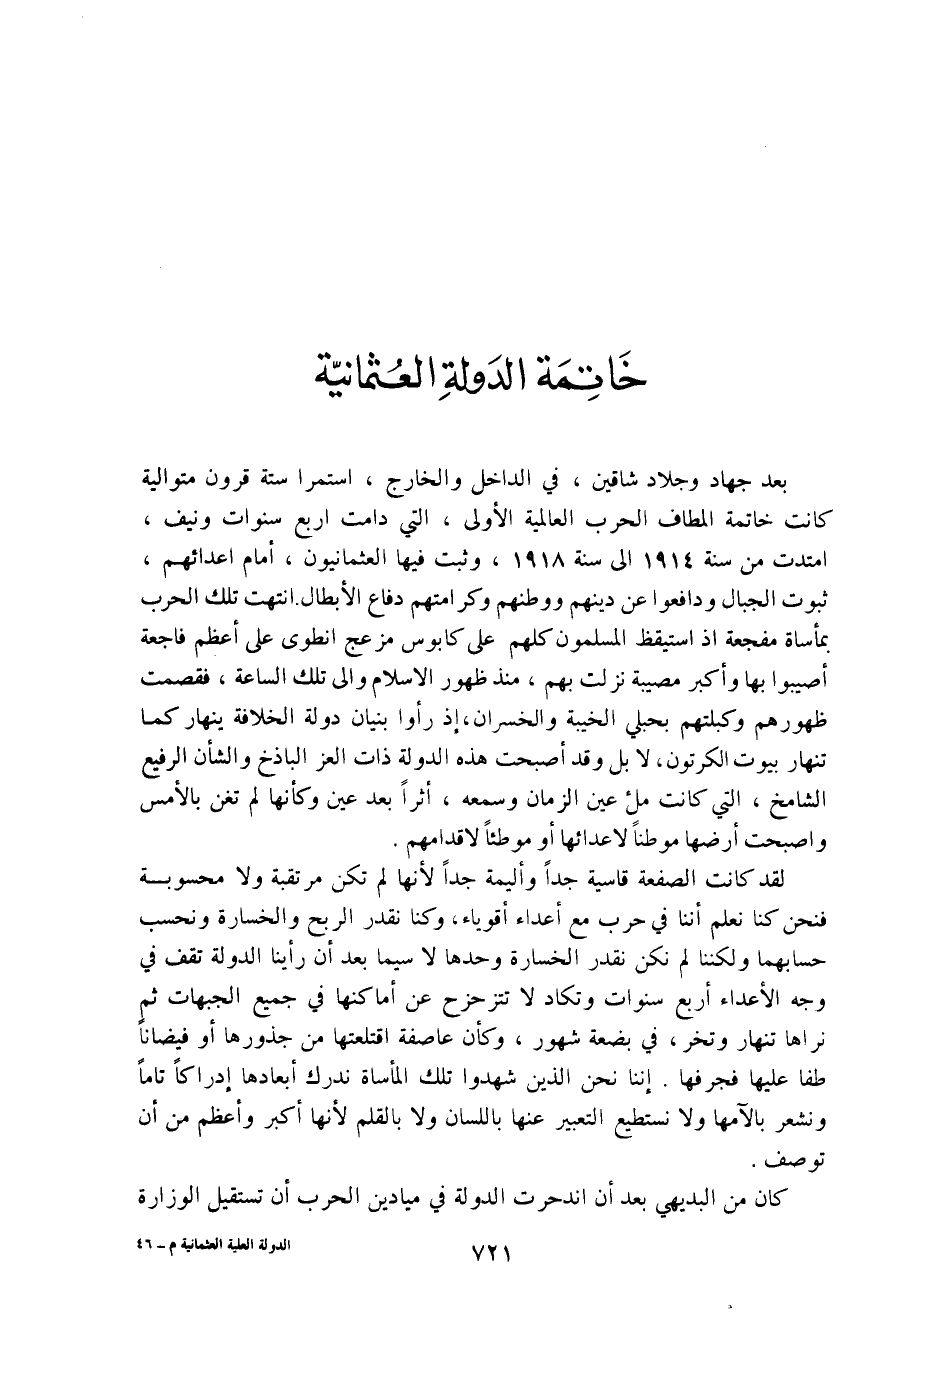 خَاتِمَة الدَولةِ العُثمانيّة
بعد جهاد وجلاد شاقين ، في الداخل والخارج ، استمرا ستة قرون متوالية
كانت خاتمة المطاف الحرب العالمية الأولى ، التي دامت اربع سنوات ونيف ،
امتدت من سنة ١٩١٤ الى سنة ١٩١٨ ، وثبت فيها العثمانيون ، أمام اعدائهم ،
ثبوت الجبال ودافعوا عن دينهم ووطنهم وكرامتهم دفاع الأبطال.انتهت تلك الحرب
بمأساة مفجعة اذ استيقظ المسلمون كلهم على كابوس مزعج انطوى على أعظم فاجعة
أصيبوا بها وأكبر مصيبة نزلت بهم ، منذ ظهور الاسلام والى تلك الساعة ، فقصمت
ظهورهم وكبلتهم بحبلي الخيبة والخسران،إذ رأوا بنيان دولة الخلافة ينهار كما
تنهار بيوت الكرتون، لا بل وقد أصبحت هذه الدولة ذات العز الباذخ والشأن الرفيع
الشامخ ، التي كانت ملئ عين الزمان وسمعه ، أثراً بعد عين وكأنها لم تغن بالأمس
واصبحت أرضها موطناً لاعدائها أو موطئاً لاقدامهم .
لقد كانت الصفعة قاسية جداً وأليمة جداً لأنها لم تكن مرتقبة ولا محسوبــة
فنحن كنا نعلم أننا في حرب مع أعداء أقوياء، وكنا نقدر الربح والخسارة ونحسب
حسابهما ولكننا لم نكن نقدر الخسارة وحدها لا سيما بعد أن رأينا الدولة تقف في
وجه الأعداء أربع سنوات وتكاد لا تتزحزح عن أماكنها في جميع الجبهات ثم
نراها تنهار وتخر ، في بضعة شهور ، وكأن عاصفة اقتلعتها من جذورها أو فيضاناً
طفا عليها فجرفها . إننا نحن الذين شهدوا تلك المأساة ندرك أبعادها إدراكاً تاماً
ونشعر بالآمها ولا نستطيع التعبير عنها باللسان ولا بالقلم لأنها أكبر وأعظم من أن
توصف .
كان من البديهي بعد أن اندحرت الدولة في ميادين الحرب أن تستقيل الوزارة
٧٢١
الدولة العلية العثمانية م – ٤٦